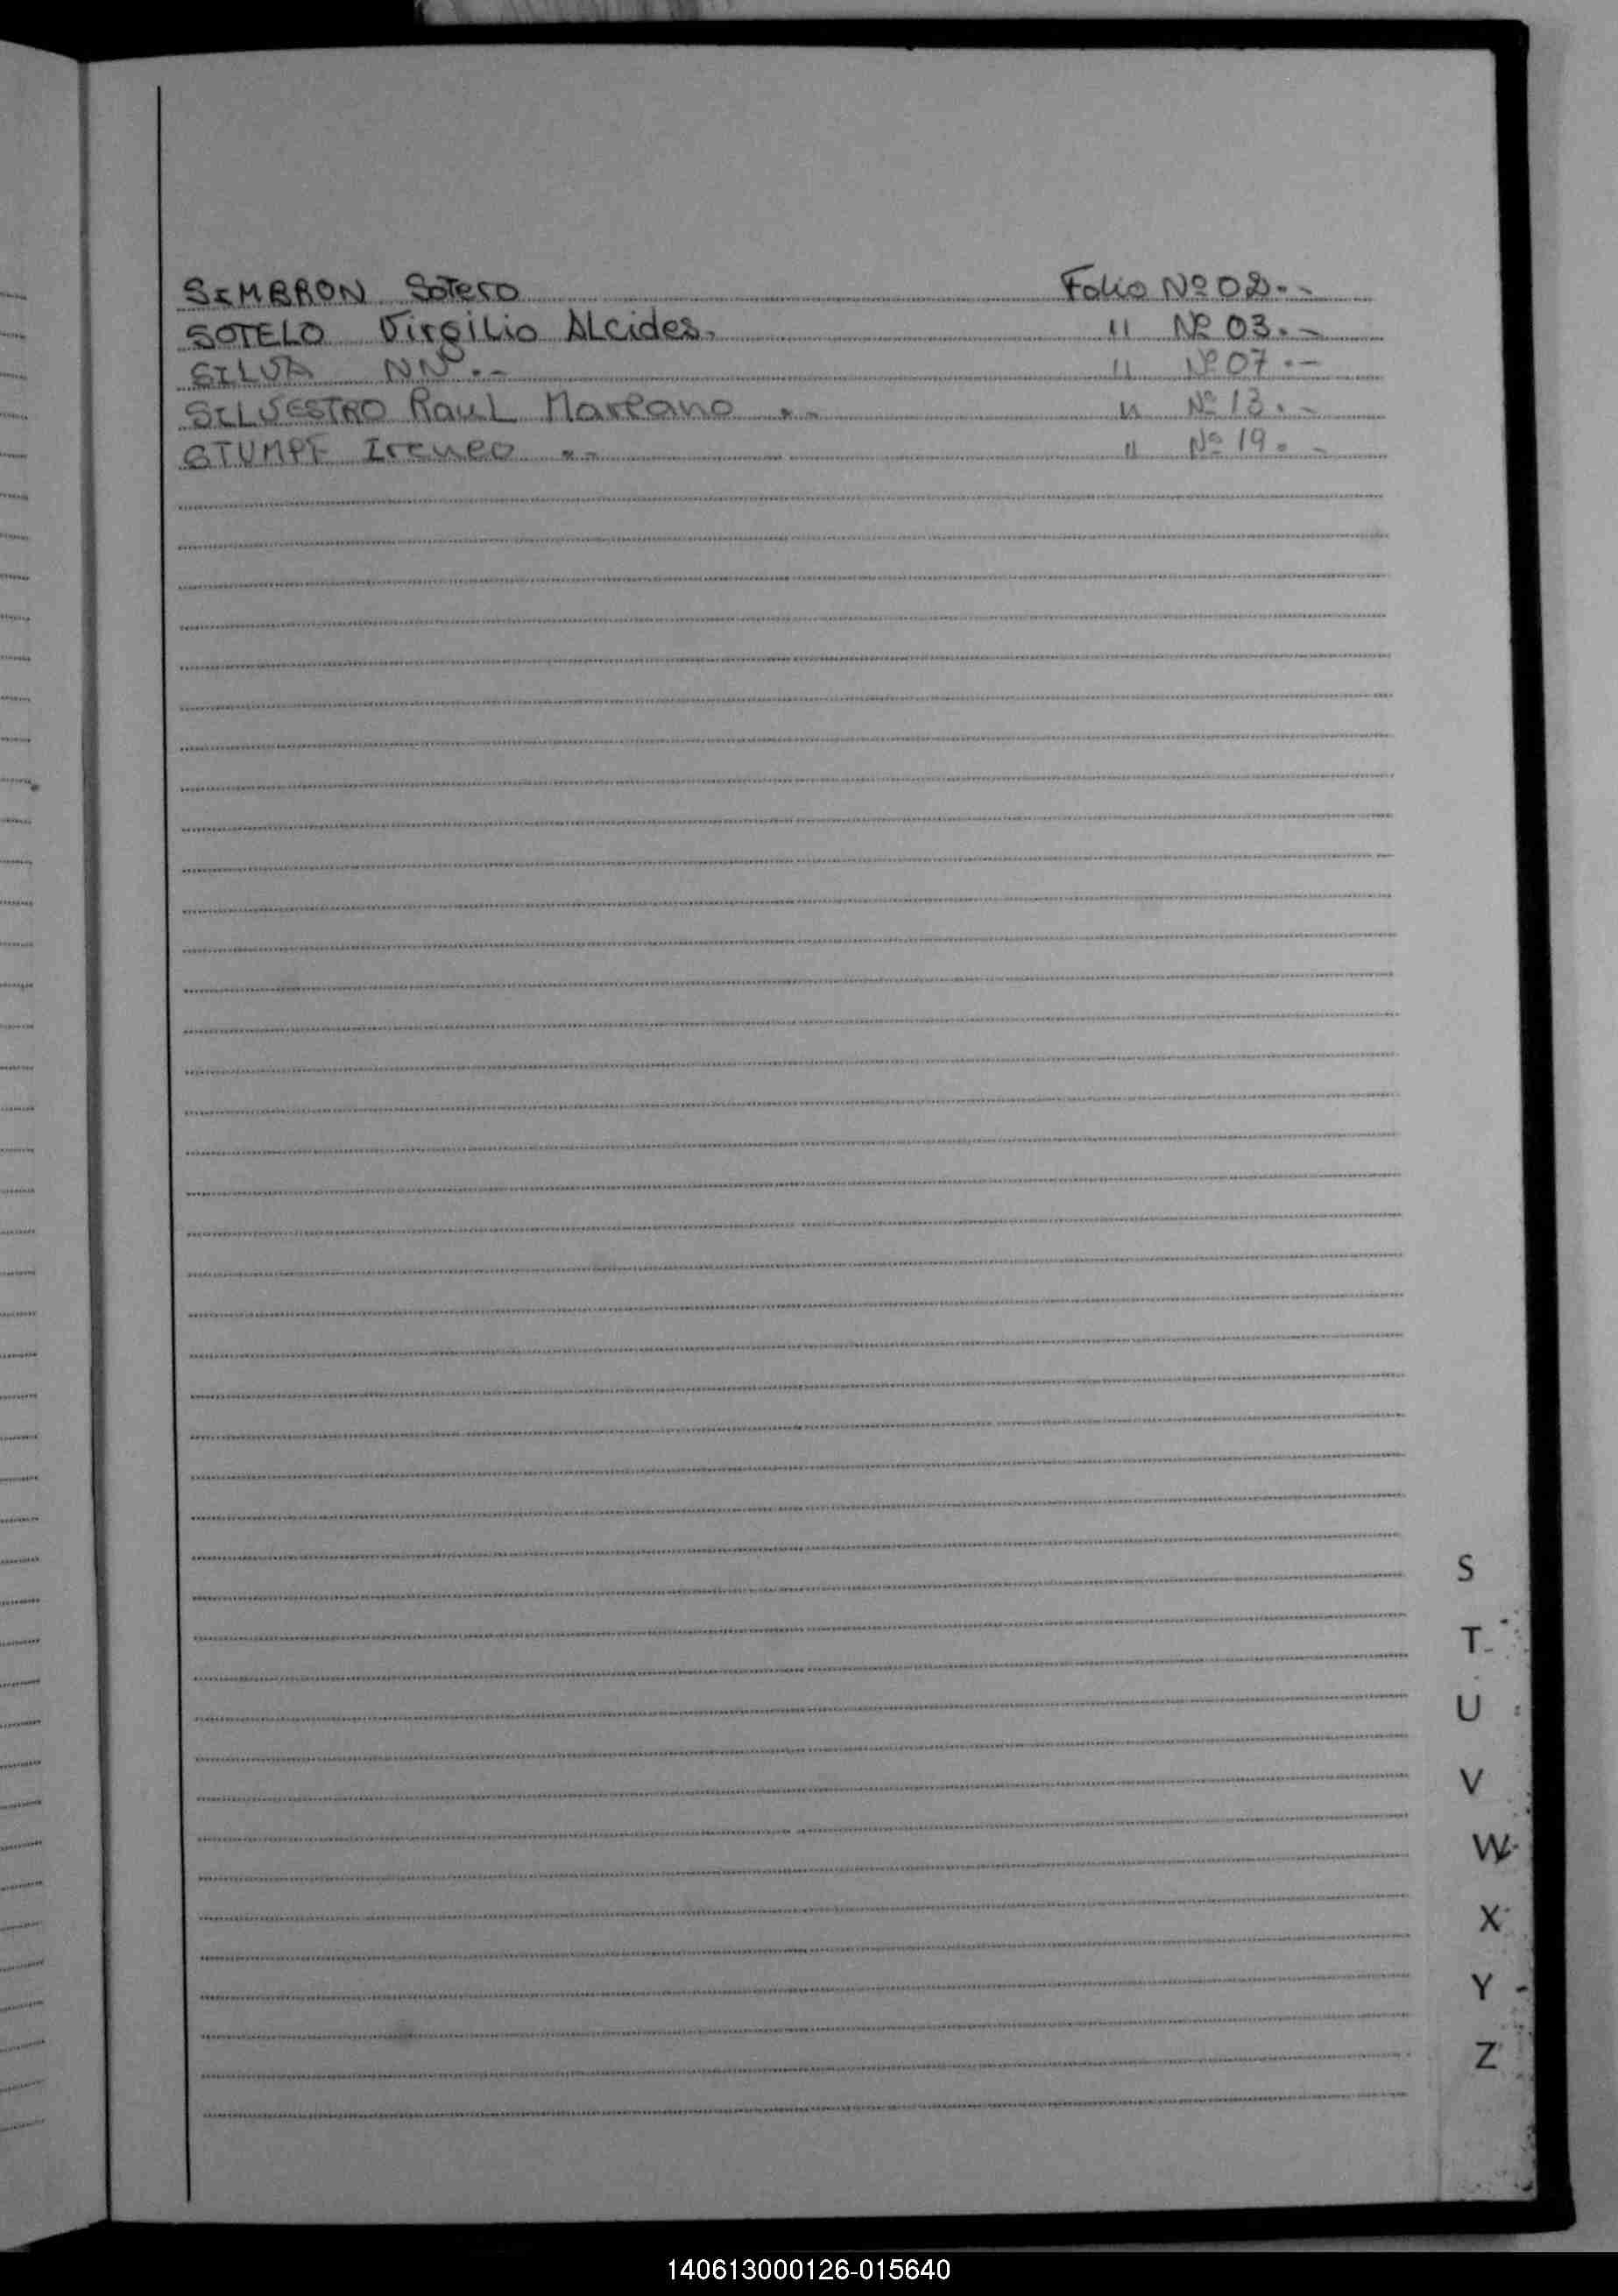 SEMBRON Sotero Folio Nº 02.-
SOTELO Virgilio Alcides. " Nº 03.-
SILVA NN.- " Nº 07.-
SILVESTRO Raul Mareano .- " Nº 13.-
STUMPF Ireneo .- " Nº 19.-
S
T
U
V
W
X
Y
Z
140613000126-015640